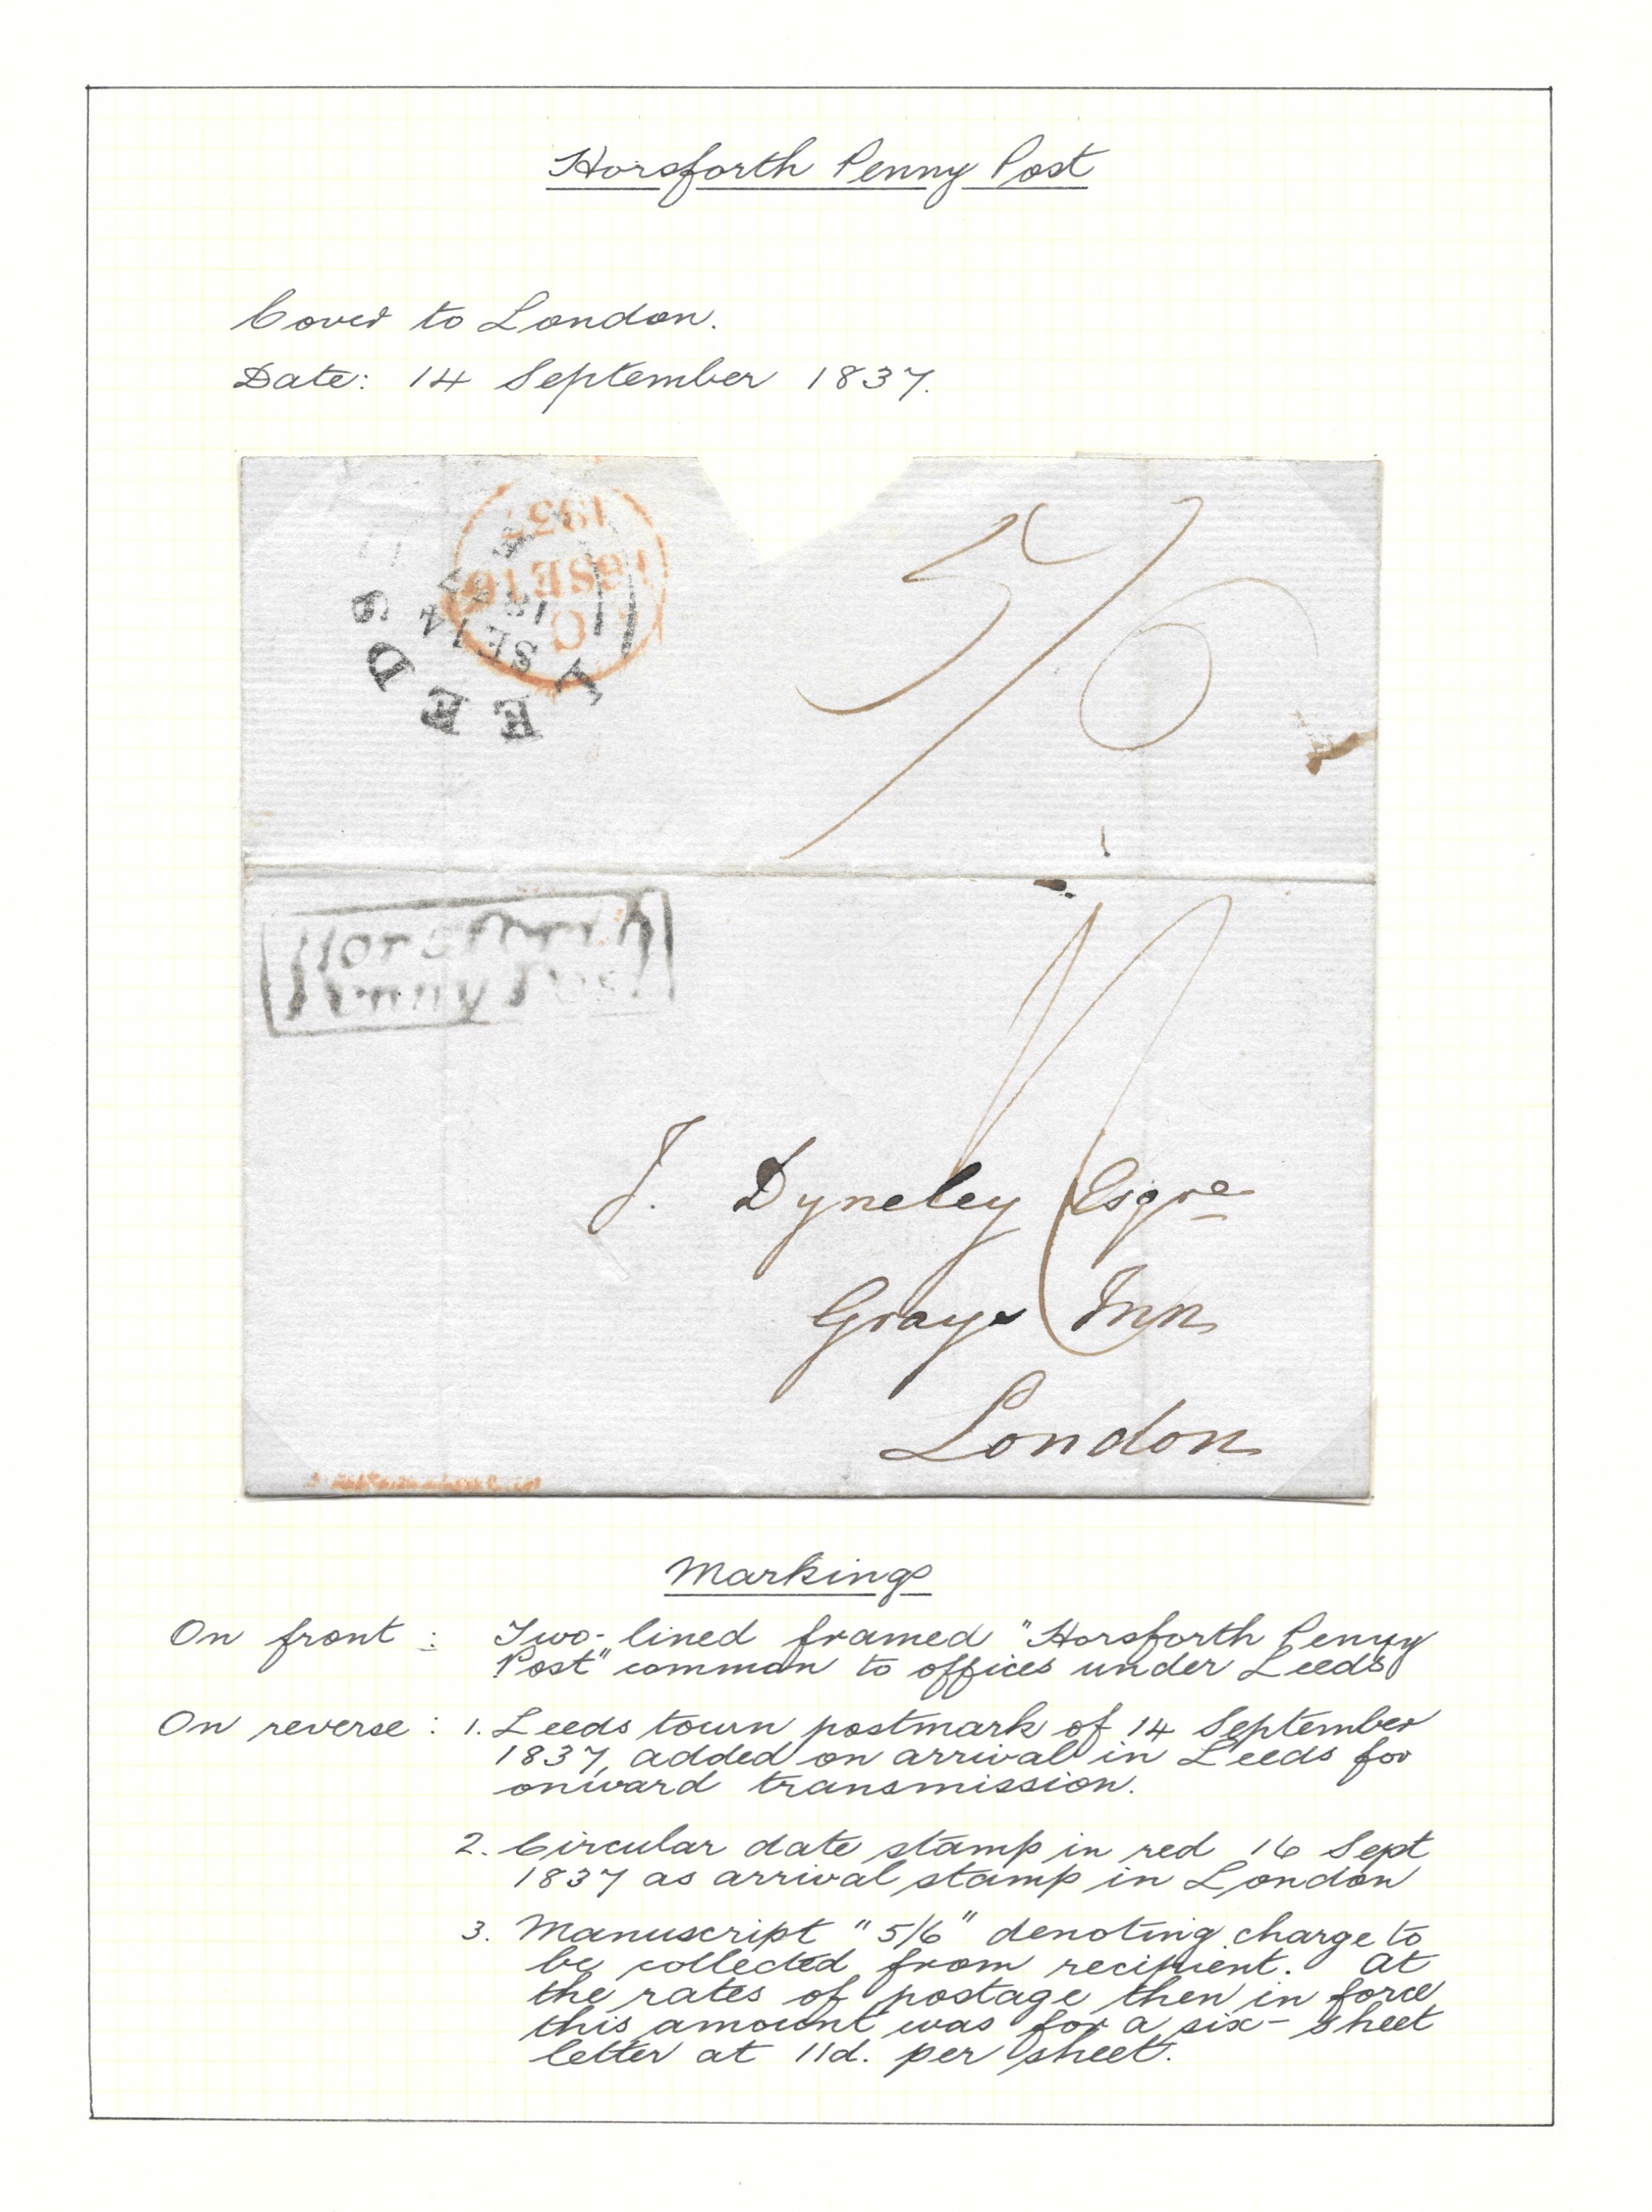 Horsforth Penny Post
Cover to London.
Date: 14 September 1837.
LEEDS
SE 14
1837
C
16SE16
1837
5/6
Horsforth
Penny Post
J. Dyneley Esqre
Grays Inn
London
Markings
On front : Two-lined framed "Horsforth Penny
Post" common to offices under Leeds
On reverse : 1. Leeds town postmark of 14 September
1837, added on arrival in Leeds for
onward transmission.
2. Circular date stamp in red 16 Sept
1837 as arrival stamp in London
3. Manuscript "5/6" denoting charge to
be collected from recipient. At
the rates of postage then in force
this amount was for a six-sheet
letter at 11d. per sheet.